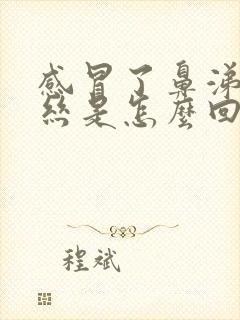 感冒了鼻涕
絲是怎麼回
程斌